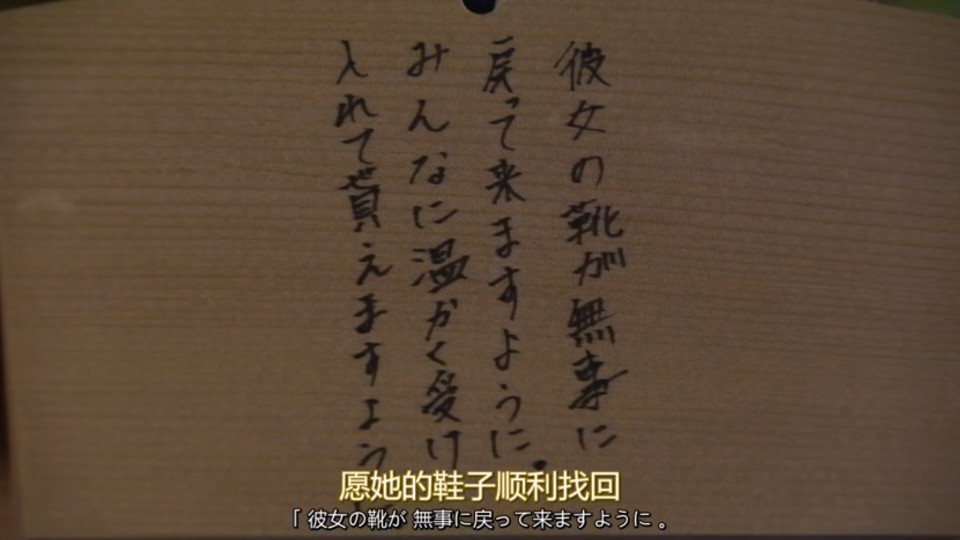 彼女の靴が無事に
戻って来ますように。
みんなに温かく受け
入れて貰えますよう
愿她的鞋子顺利找回
「 彼女の靴が 無事に戻って来ますように 。